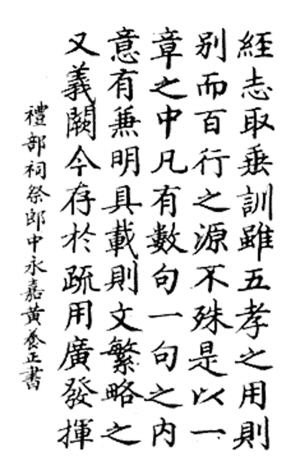 經志取垂訓雖五孝之用則
別而百行之源不殊是以一
章之中凡有數句一句之内
意有兼明具載則文繁略之
又義闕今存於疏用廣發揮
禮部祠祭郎中永嘉黃養正書